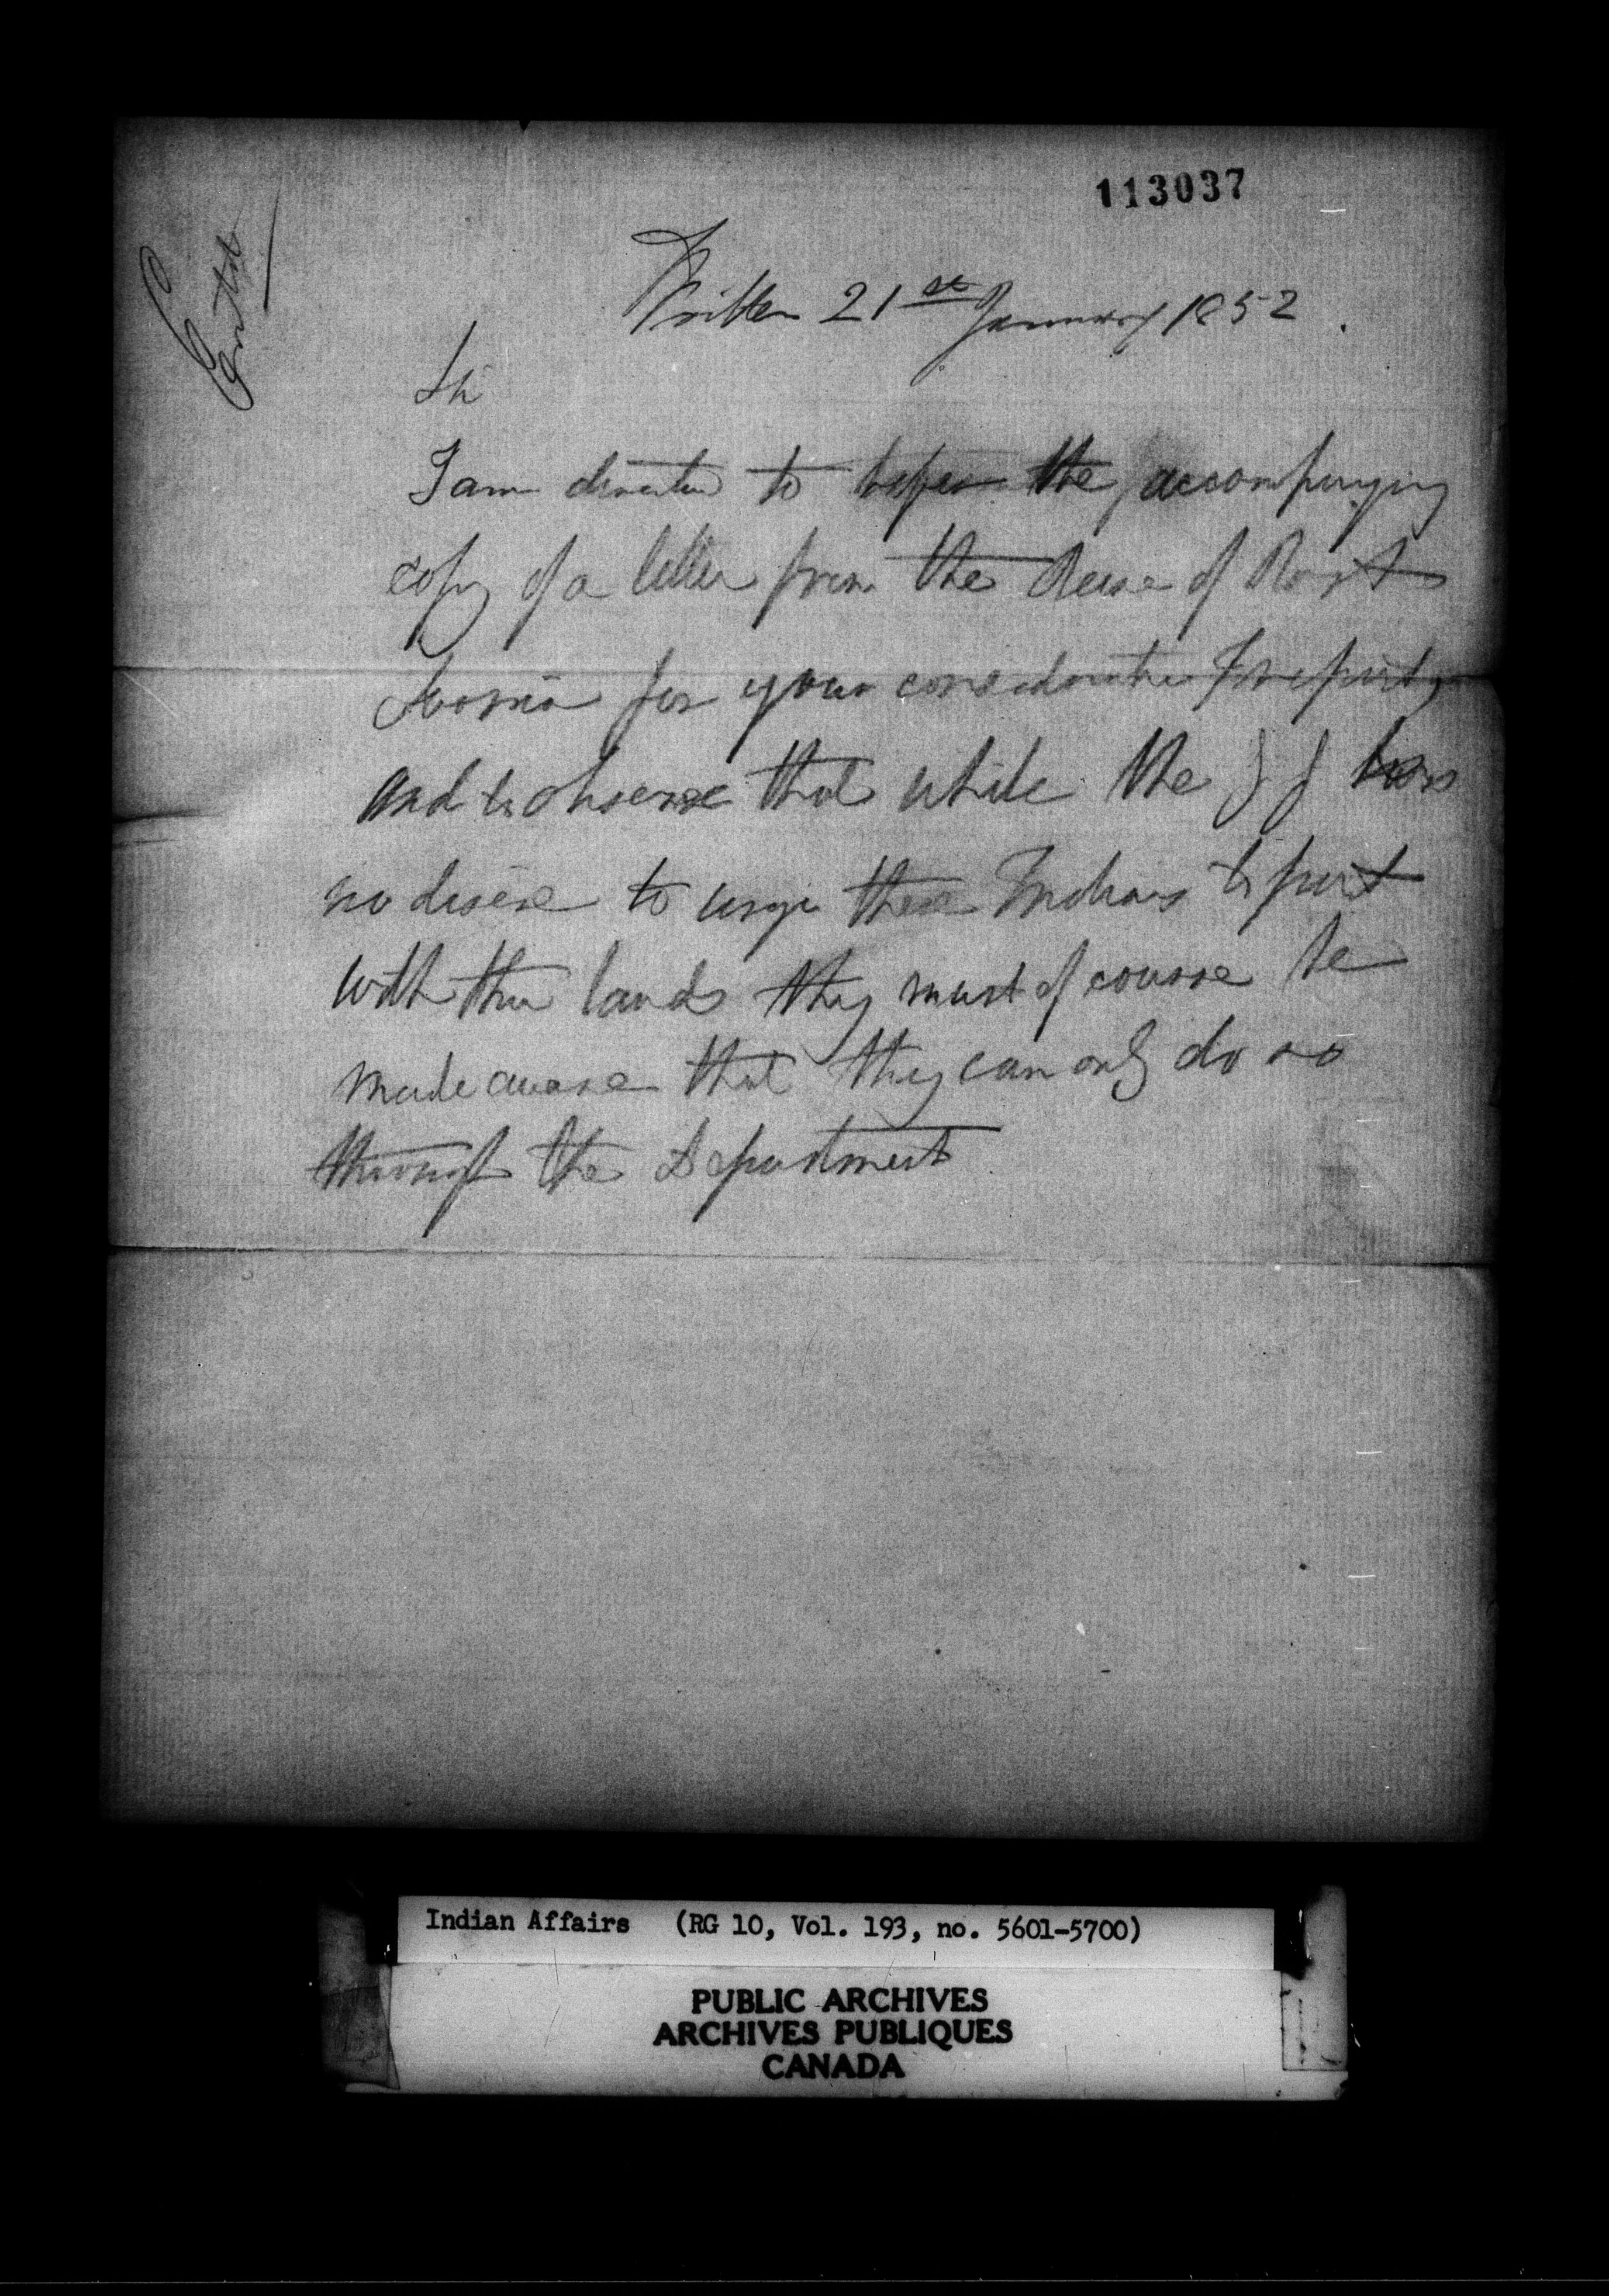 113037
Entd
Written 21st January 1852
Sir
I am directed to the accompanying
copy of a letter from the Reeve of Port
Sarnia for your consideration & report,
and to observe that while the G G has
no desire to urge these Indians to part
with their lands they must of course be
made aware that they can only do so
through the Department
Indian Affairs (RG 10, Vol. 193, no. 5601-5700)
PUBLIC ARCHIVES
ARCHIVES PUBLIQUES
CANADA